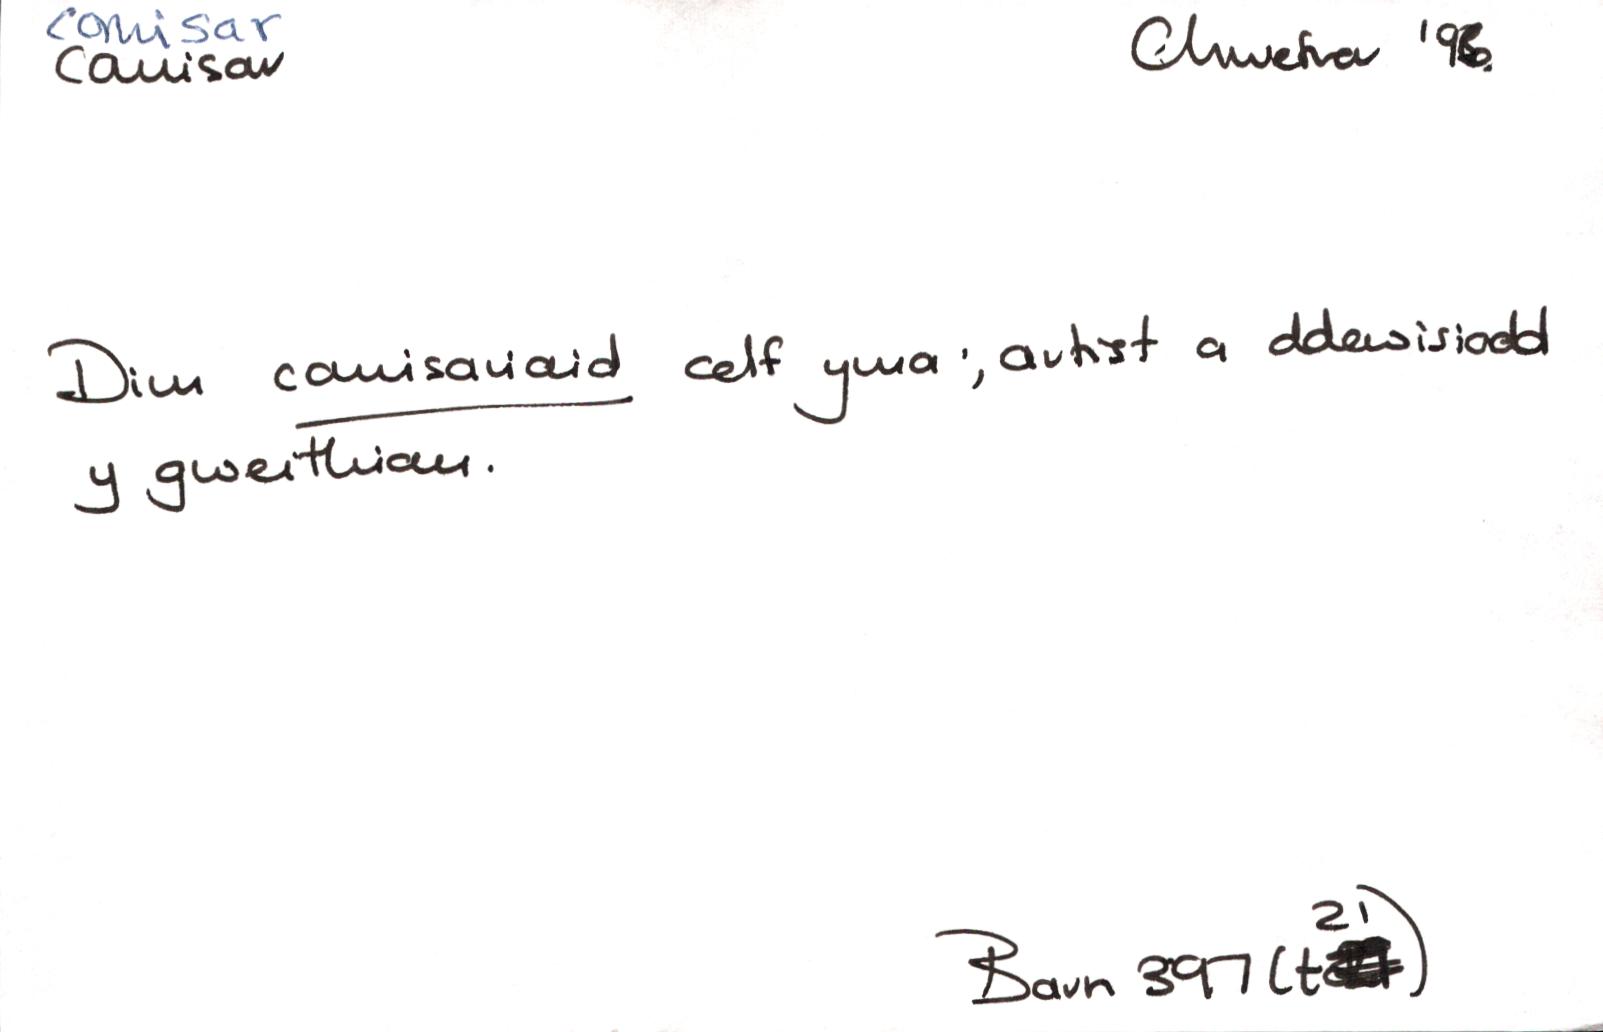 comisar
Camisar Chwefror '96.
Dim camisariaid celf yma; artist a ddewisiodd
y gweithiau.
21
Barn 397 (t )